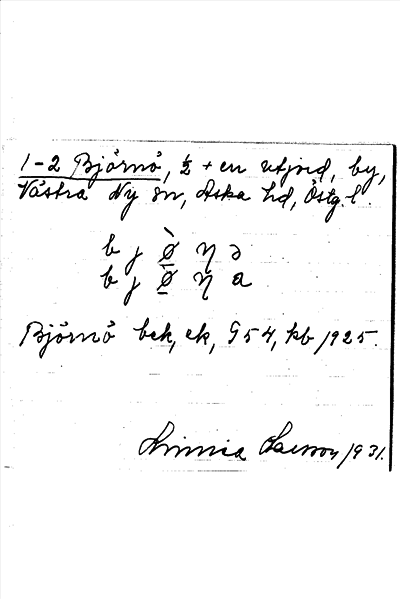 1-2 Björnö, ½ + en utjord, by,
Västra Ny sn, Aska hd, Östg. l.
b j ø̀ ɳ ə
b j ø ɳ a
Björnö bek, ek, G 54, kb 1925.
Linnea Larsson 1931.